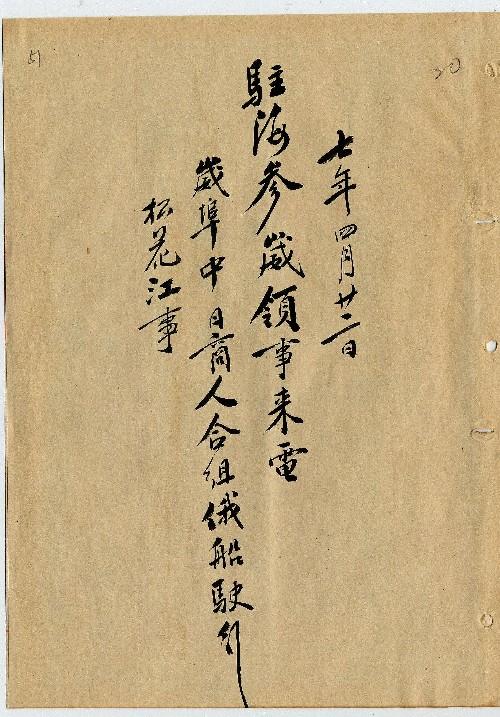 30
七年四月廿二日
駐海參崴領事来電
崴埠中日商人合組俄船駛行
松花江事